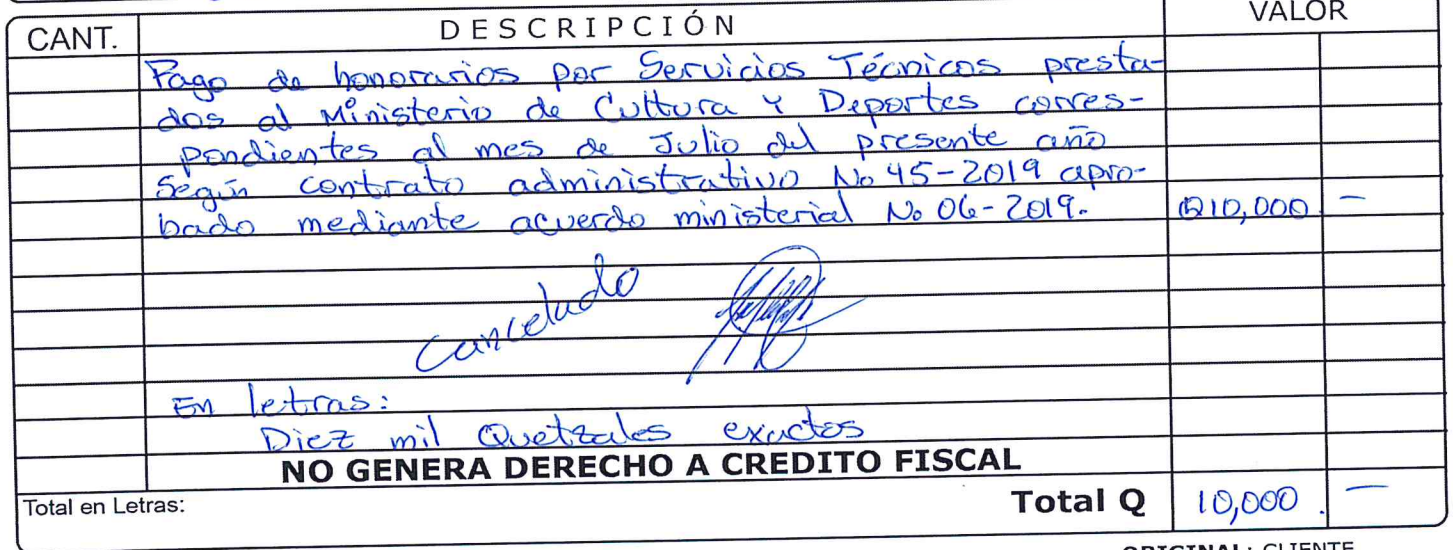 CANT. DESCRIPCIÓN VALOR
Pago de honorarios por Servicios Técnicos presta-
dos al Ministerio de Cultura y Deportes corres-
pondientes al mes de Julio del presente año
Según contrato administrativo No 45-2019 apro-
bado mediante acuerdo ministerial No 06-2019. Q10,000. —
Cancelado
En letras:
Diez mil Quetzales exactos
NO GENERA DERECHO A CREDITO FISCAL
Total en Letras: Total Q 10,000. —
ORIGINAL: CLIENTE